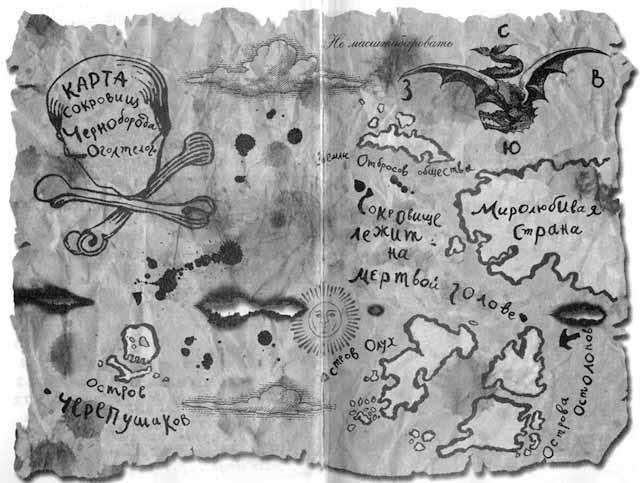 КАРТА
СОКРОВИЩ
ЧЕРНОБОРОДА
ОГОЛТЕЛОГО
Не масштабировать
С
З
В
Ю
Земли Отбросов общества
Миролюбивая
Страна
Сокровище
лежит
на
мертвой голове
остров Олух
Острова Остолопов
Остров
Черепушаков